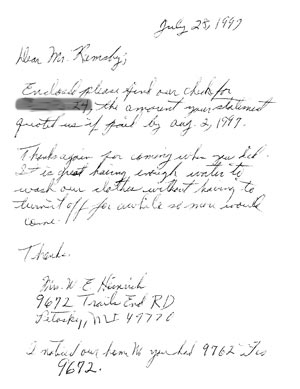 July 25, 1997
Dear Mr. Remsby;
Enclosed please find our check for
24, the amount your statement
quoted us if paid by Aug. 2, 1997.
Thanks again for coming when you did.
It is great having enough water to
wash our clothes without having to
turn it off for awhile so more would
come.
Thanks.
Mrs. W E
9672 Trails End RD
Petosky, MI 49770
I noticed our home No you had 9762 Its
9672.